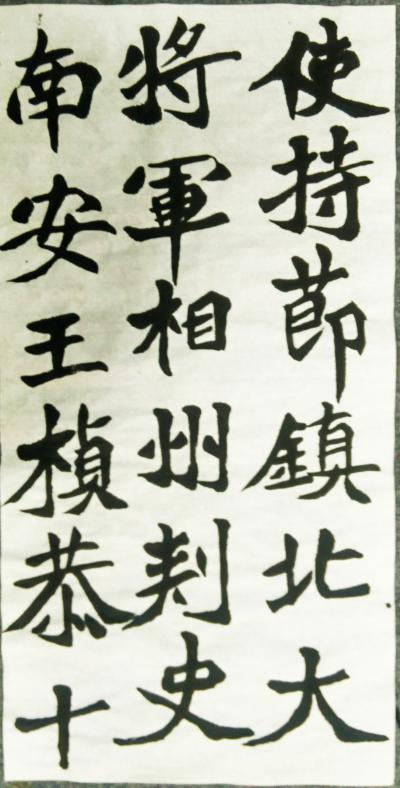 使持節鎮北大
將軍相州刾史
南安王楨恭十